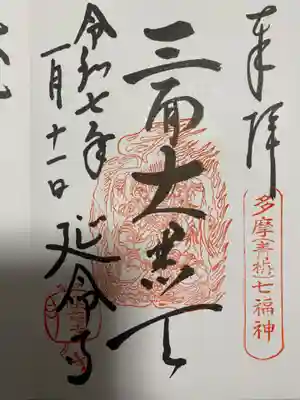 奉拝
多摩青梅七福神
三面大黒天
令和七年
一月十一日
延命寺